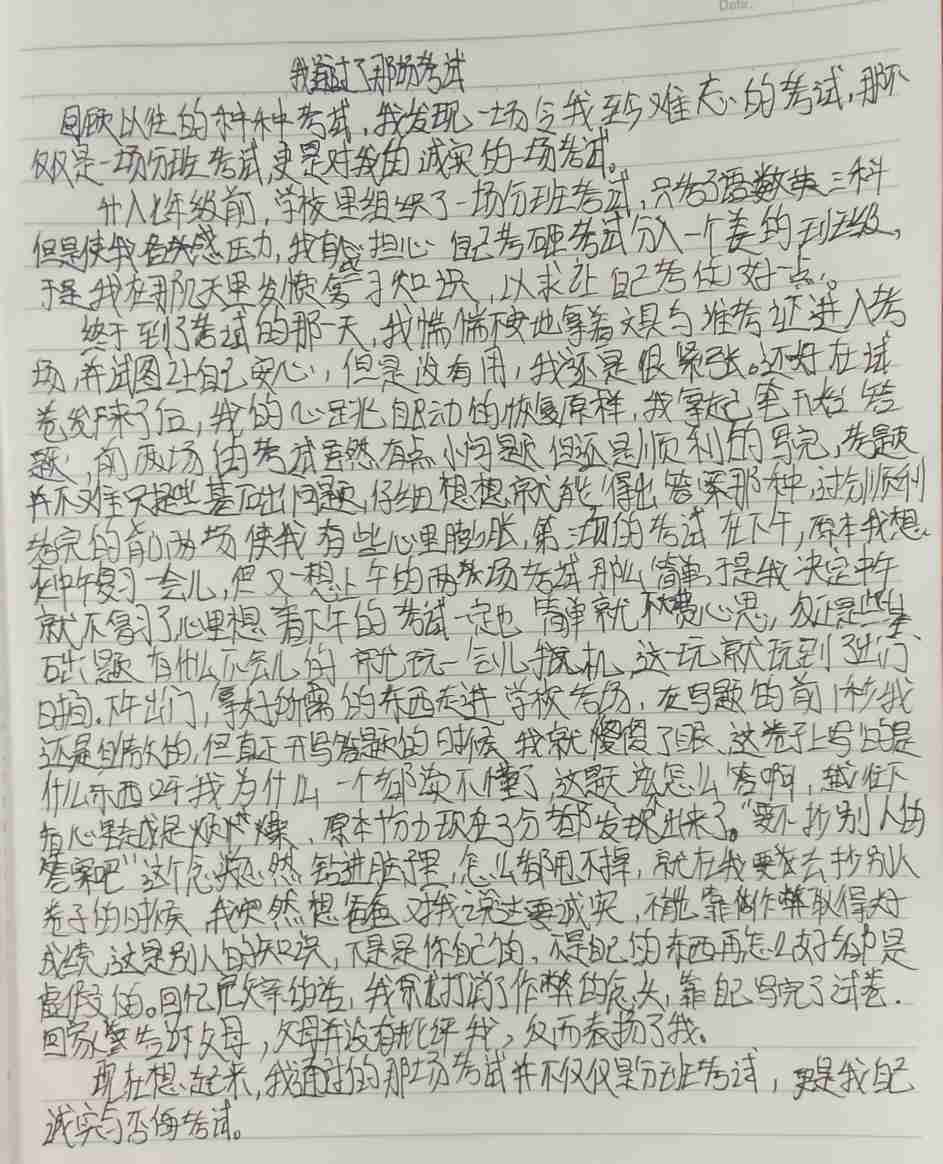 Date.
我通过了那场考试
回顾以往的种种考试，我发现一场令我至今难忘的考试，那不
仅仅是一场分班考试，更是对我的诚实的一场考试。
升入七年级前，学校里组织了一场分班考试，只考了语数英三科
但是使我感压力，我有些担心自己考砸考试分入一个差的班级，
于是我在那几天里发愤复习知识，以求让自己考的好一点。
终于到了考试的那一天，我惴惴不安地拿着文具与准考证进入考
场，并试图让自己安心，但是没有用，我还是很紧张。还好在试
卷发下来了后，我的心跳自动的恢复原样，我拿起笔开始答
题，前两场的考试虽然有点小问题但还是顺利的写完，考题
并不难只是些基础问题，仔细想想就能得出答案那种，过分顺利
考完的前两场使我有些心里膨胀，第三场的考试在下午，原本我想
在中午复习一会儿，但又一想上午的两场考试那么简单，于是我决定中午
就不复习了心里想着下午的考试一定也简单就不费心思，勿正是些基
础题有什么不会儿的就玩一会儿手机，这一玩就玩到了出门
时间，下午出门，拿好所需的东西走进学校考场，在写题的前1秒我
还是自傲的，但真正开写答题的时候我就傻傻了眼、这卷子上写的是
什么东西呀我为什么一个都读不懂了这题应怎么答啊，越往下
看心里越是烦燥、原本十分力现在3分都发挥不出来了。“要不抄别人的
答案吧”这个念头忽然钻进脑子里，怎么都甩不掉，就在我要去抄别人
卷子的时候我突然想爸爸对我说过要诚实，不能靠做作弊取得好
成绩，这是别人的知识，不是是你自己的，不是自己的东西再怎么好都是
虚假的。回忆的话，我就打消了作弊的念头，靠自己写完了试卷．
回家告诉父母，父母并没有批评我，反而表扬了我。
现在想起来，我通过的那场考试并不仅仅是分班考试，更是我自己
诚实与否的考试。